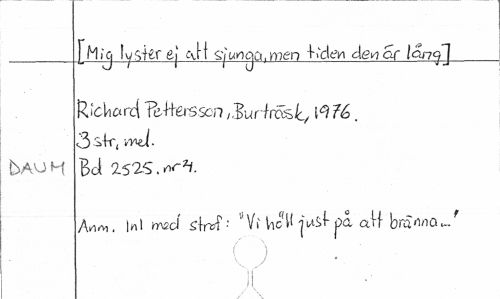 [Mig lyster ej att sjunga, men tiden den är lång]
Richard Pettersson, Burträsk, 1976.
3 str, mel.
DAUM Bd 2525. nr 4.
Anm. Inl med strof: "Vi höll just på att bränna..."